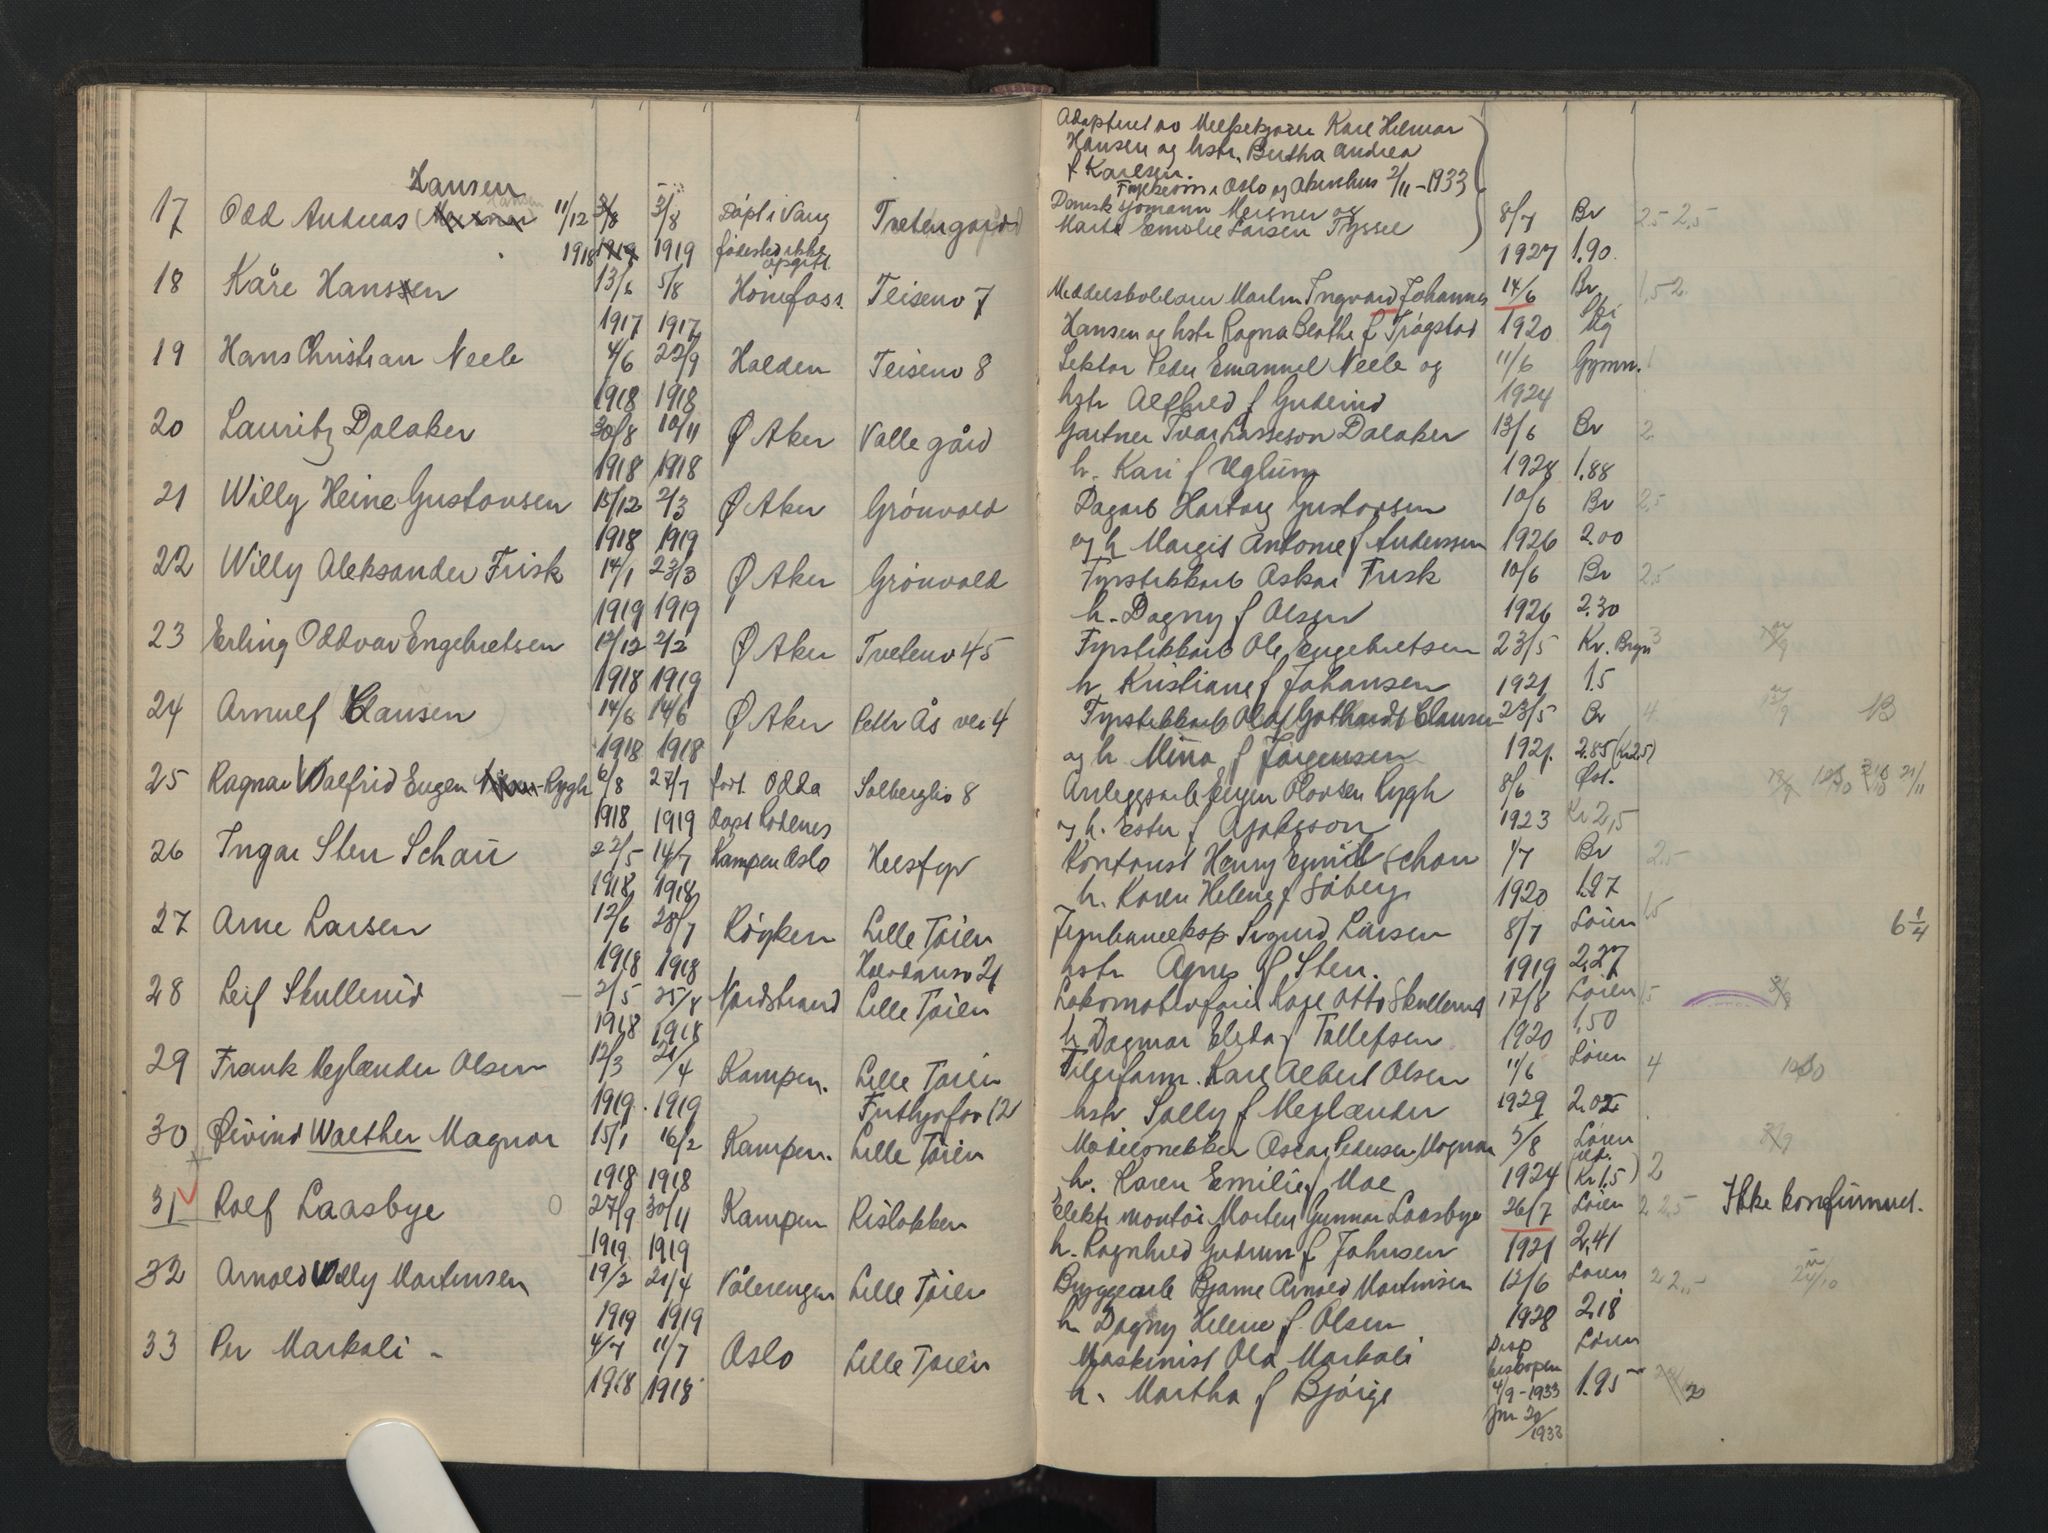 Adopteret av Melkekjører Karl Hilmar
Hansen og hstr. Bertha Andrea
f Karlsen.
Fylkesm i Oslo og Akershus 2/11-1933
Hansen
17 Odd Andreas 11/12 3/8 Døpt i Vang Tvetengård Dansk sjømann Meisner og 8/7 Br 2.5 2,5
1918 1919 1919 fødested ikke opgitt Marte Emelie Larsen Tyssel 1927 1.90
18 Kåre Hansen 13/6 5/8 Hönefoss Teisenv 7 Martin Ingvard Johannes 14/6 Br 1,5 2
1917 1917 Hansen og hstr Ragna Beathe f Trøgstad 1920
19 Hans Christian Neele 4/6 22/9 Halden Teisenv 8 Lektor Peder Emanuel Neele og 11/6 Gymn. 1
1918 1918 hstr Alfhild f Guderud 1924
20 Lauritz Dalaker 30/8 10/11 Ø Aker Valle gård Gartner Ivar Lasseson Dalaker 13/6 Br 2.
1918 1918 h. Kari f Uglum 1928 1.88
21 Willy Heine Gustavsen 15/12 2/3 Ø Aker Grönvold Dagarb Hartvig Gustavsen 10/6 Br 2,5
1918 1919 og h Margit Antonie f Anderssen 1926 2.00
22 Willy Aleksander Frisk 14/1 23/3 Ø Aker Grönvold Fyrstikkarb Oskar Frisk 10/6 Br 2,5
1919 1919 h. Dagny f Olsen 1926 2.30
23 Erling Oddvar Engebretsen 12/12 2/2 Ø Aker Tvetenv 45 Fyrstikkarb Ole Engebretsen 23/5 Kr. Bryn 3
1918 1919 h Kristiane f Johansen 1921 1.5
24 Arnulf Clausen 14/6 14/6 Ø Aker Petter Ås vei 4 Fyrstikkarb Olaf Gothardt Clausen 23/5 Br 4 13
1918 1918 og h. Mina f Jørgensen 1921. 2.85 (Kr 2.5)
25 Ragnar Walfrid Eugen Rygh 6/8 27/7 født Odda Solberglio 8 Anleggsarb Eugen Olavsen Rygh 8/6 Øst. 21/11
1918 1919 døpt Rødenes og h. Ester f 1923 Kr 2,5
26 Ingar Sten Schau 22/5 14/7 Kampen Oslo Helsfyr Kontorist Henry Emil Schau 1/7 Br 2.5
1918 1918 h. Karen Helene f Søberg 1920 1.97
27 Arne Larsen 12/6 28/7 Røyken Lille Tøien Jernbaneeksp Sigurd Larsen 8/7 Løren 1,5 6 1/4
1918 1918 Halvdansv 21 hstr Agnes f Sten. 1919 2,27
28 Leif Skullerud 2/5 25/8 Nordstrand Lille Tøien Lokomotivfører Kåre Otto Skullerud 17/8 Løren 1,5
1918 1918 h Dagmar Elida f Tollefsen 1920 1,50
29 Frank Meylænder Olsen 12/3 21/4 Kampen. Lille Tøien Filerform. Karl Albert Olsen 11/6 Løren 4
1919. 1919 Fritjofsv 12 hstr Sally f Meylænder 1929 2.02
30 Øivind Walther Magnar 15/1 16/2 Kampen. Lille Tøien Modellsnekker Oscar Pedersen Magnar 5/8 Løren
1918 1918 h. Karen Emilie f Moe 1924 (Kr 1.5) 2
31 Rolf Laasbye 0 27/9 30/11 Kampen Risløkken Elektr montør Morten Gunnar Laasbye 26/7 Løren 2 2.5 Ikke konfirmert.
1919 1919 h. Ragnhild Gudrun f Johnsen 1921 2,41
32 Arnold Willy Martinsen 19/2 21/4 Vålerengen Lille Tøien Byggearb Bjarne Arnold Martinsen 12/6 Løren 2 2,-
1919 1919 h Dagny Helene f. Olsen 1928 2,18
33 Per Markali - 4/7 11/7 Oslo Lille Tøien Maskinist Ola Markali Disp Løren
1918 1918 h. Martha f Bjørge biskopen 1.95
4/9-1933
Jnr
1933